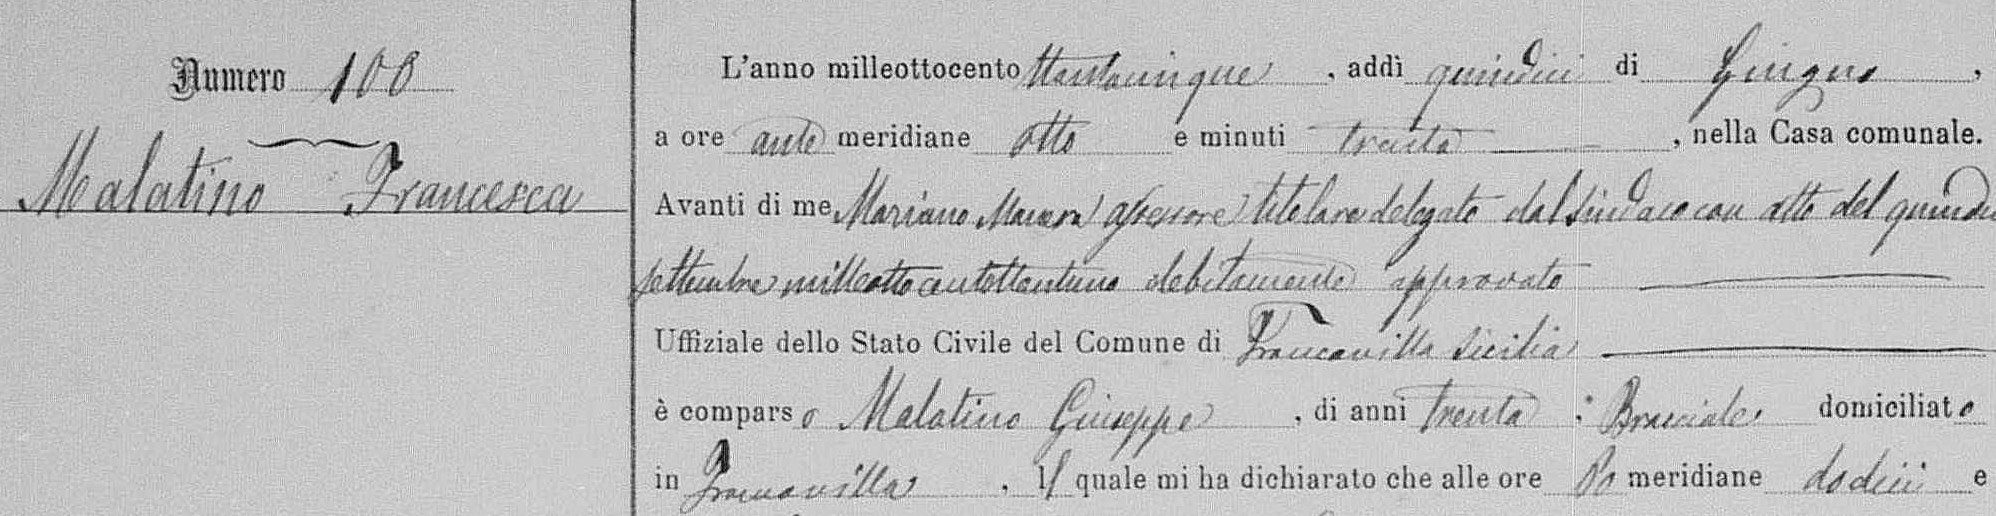 Numero 100
Malatino Francesca
L'anno milleottocento ttantacinque, addì quindici di Giugno,
a ore ante meridiane otto e minuti trenta, nella Casa comunale.
Avanti di me Mariano assessore titolare delegato dal Sindaco con atto del quindici
settembre milleottocentottantuno debitamente approvato
Uffiziale dello Stato Civile del Comune di Francavilla Sicilia
è comparso Malatino Giuseppe, di anni trenta, Bracciale domiciliato
in Francavilla, Il quale mi ha dichiarato che alle ore Po meridiane dodici e